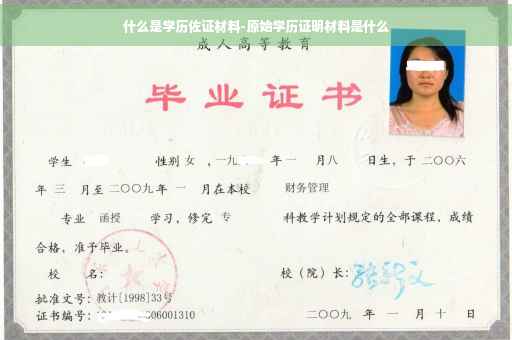 什么是学历佐证材料-原始学历证明材料是什么
成人高等教育
毕业证书
学生 性别 女 ,一九 年 一 月八 日生,于二〇〇六
年 三 月至二〇〇九年 一 月在本校 财务管理
专业 函授 学习,修完 专 科教学计划规定的全部课程,成绩
合格,准予毕业。
校 名: 校(院)长:
批准文号:教计[1998]33号
证书编号: 06001310 二〇〇九 年 一 月 十 日